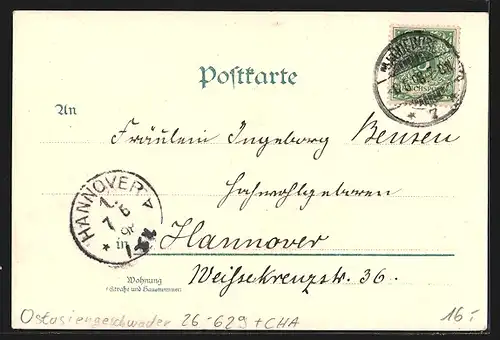 Postkarte
An
Fräulein Ingeborg Bensen
Hochwohlgeboren
in Hannover
Weissekreuzstr. 36.
HANNOVER
1.
7 5
98
Wohnung
(Strasse und Hausnummer)
Ostasiengeschwader 26-629 + CHA
16,-